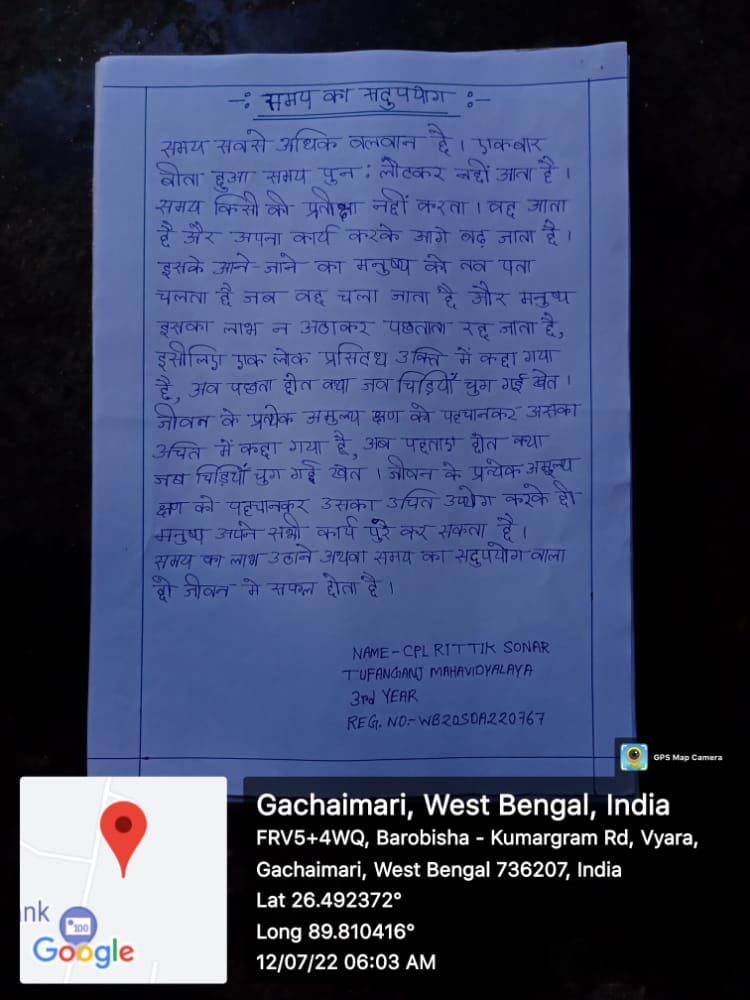 -: समय का सदुपयोग :-
समय सबसे अधिक बलवान है । एकबार
बीता हुआ समय पुन: लौटकर नहीं आता है ।
समय किसी की प्रतीक्षा नहीं करता । वह आता
है और अपना कार्य करके आगे बढ़ जाता है ।
इसके आने-जाने का मनुष्य को तब पता
चलता है जब वह चला जाता है और मनुष्य
इसका लाभ न उठाकर पछताता रह जाता है,
इसीलिए एक लोक प्रसिदध उक्ति में कहा गया
है, अब पछता होत क्या जब चिड़ियाँ चुग गई खेत ।
जीवन के प्रत्येक अमुल्य क्षण को पहचानकर उसका
उचित में कहा गया है, अब पहताए होत क्या
जब चिड़ियाँ चुग गई खेत । जीवन के प्रत्येक अमूल्य
क्षण को पहचानकर उसका उचित उपयोग करके ही
मनुष्य अपने सभी कार्य पुरे कर सकता है ।
समय का लाभ उठाने अथवा समय का सदुपयोग वाला
ही जीवन मे सफल होता है ।
NAME-CPL RITTIK SONAR
TUFANGANJ MAHAVIDYALAYA
3rd YEAR
REG. NO:-WB20SDA220767
GPS Map Camera
Gachaimari, West Bengal, India
FRV5+4WQ, Barobisha - Kumargram Rd, Vyara,
Gachaimari, West Bengal 736207, India
Lat 26.492372°
Long 89.810416°
12/07/22 06:03 AM
nk
100
Google